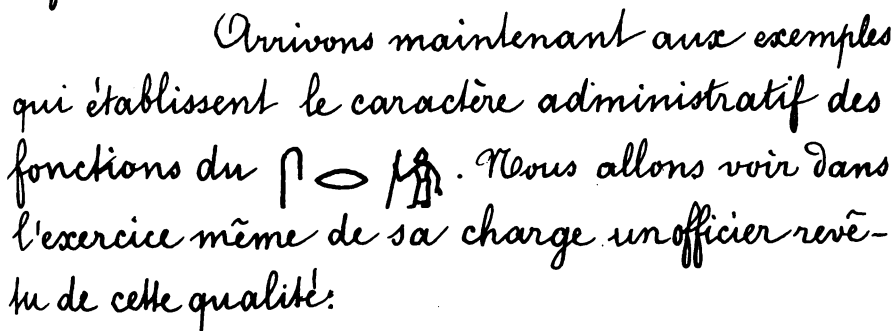 Arrivons maintenant aux exemples
qui établissent le caractère administratif des
fonctions du 𓋴 𓂋 𓀙. Nous allons voir dans
l'exercice même de sa charge un officier revê-
tu de cette qualité: